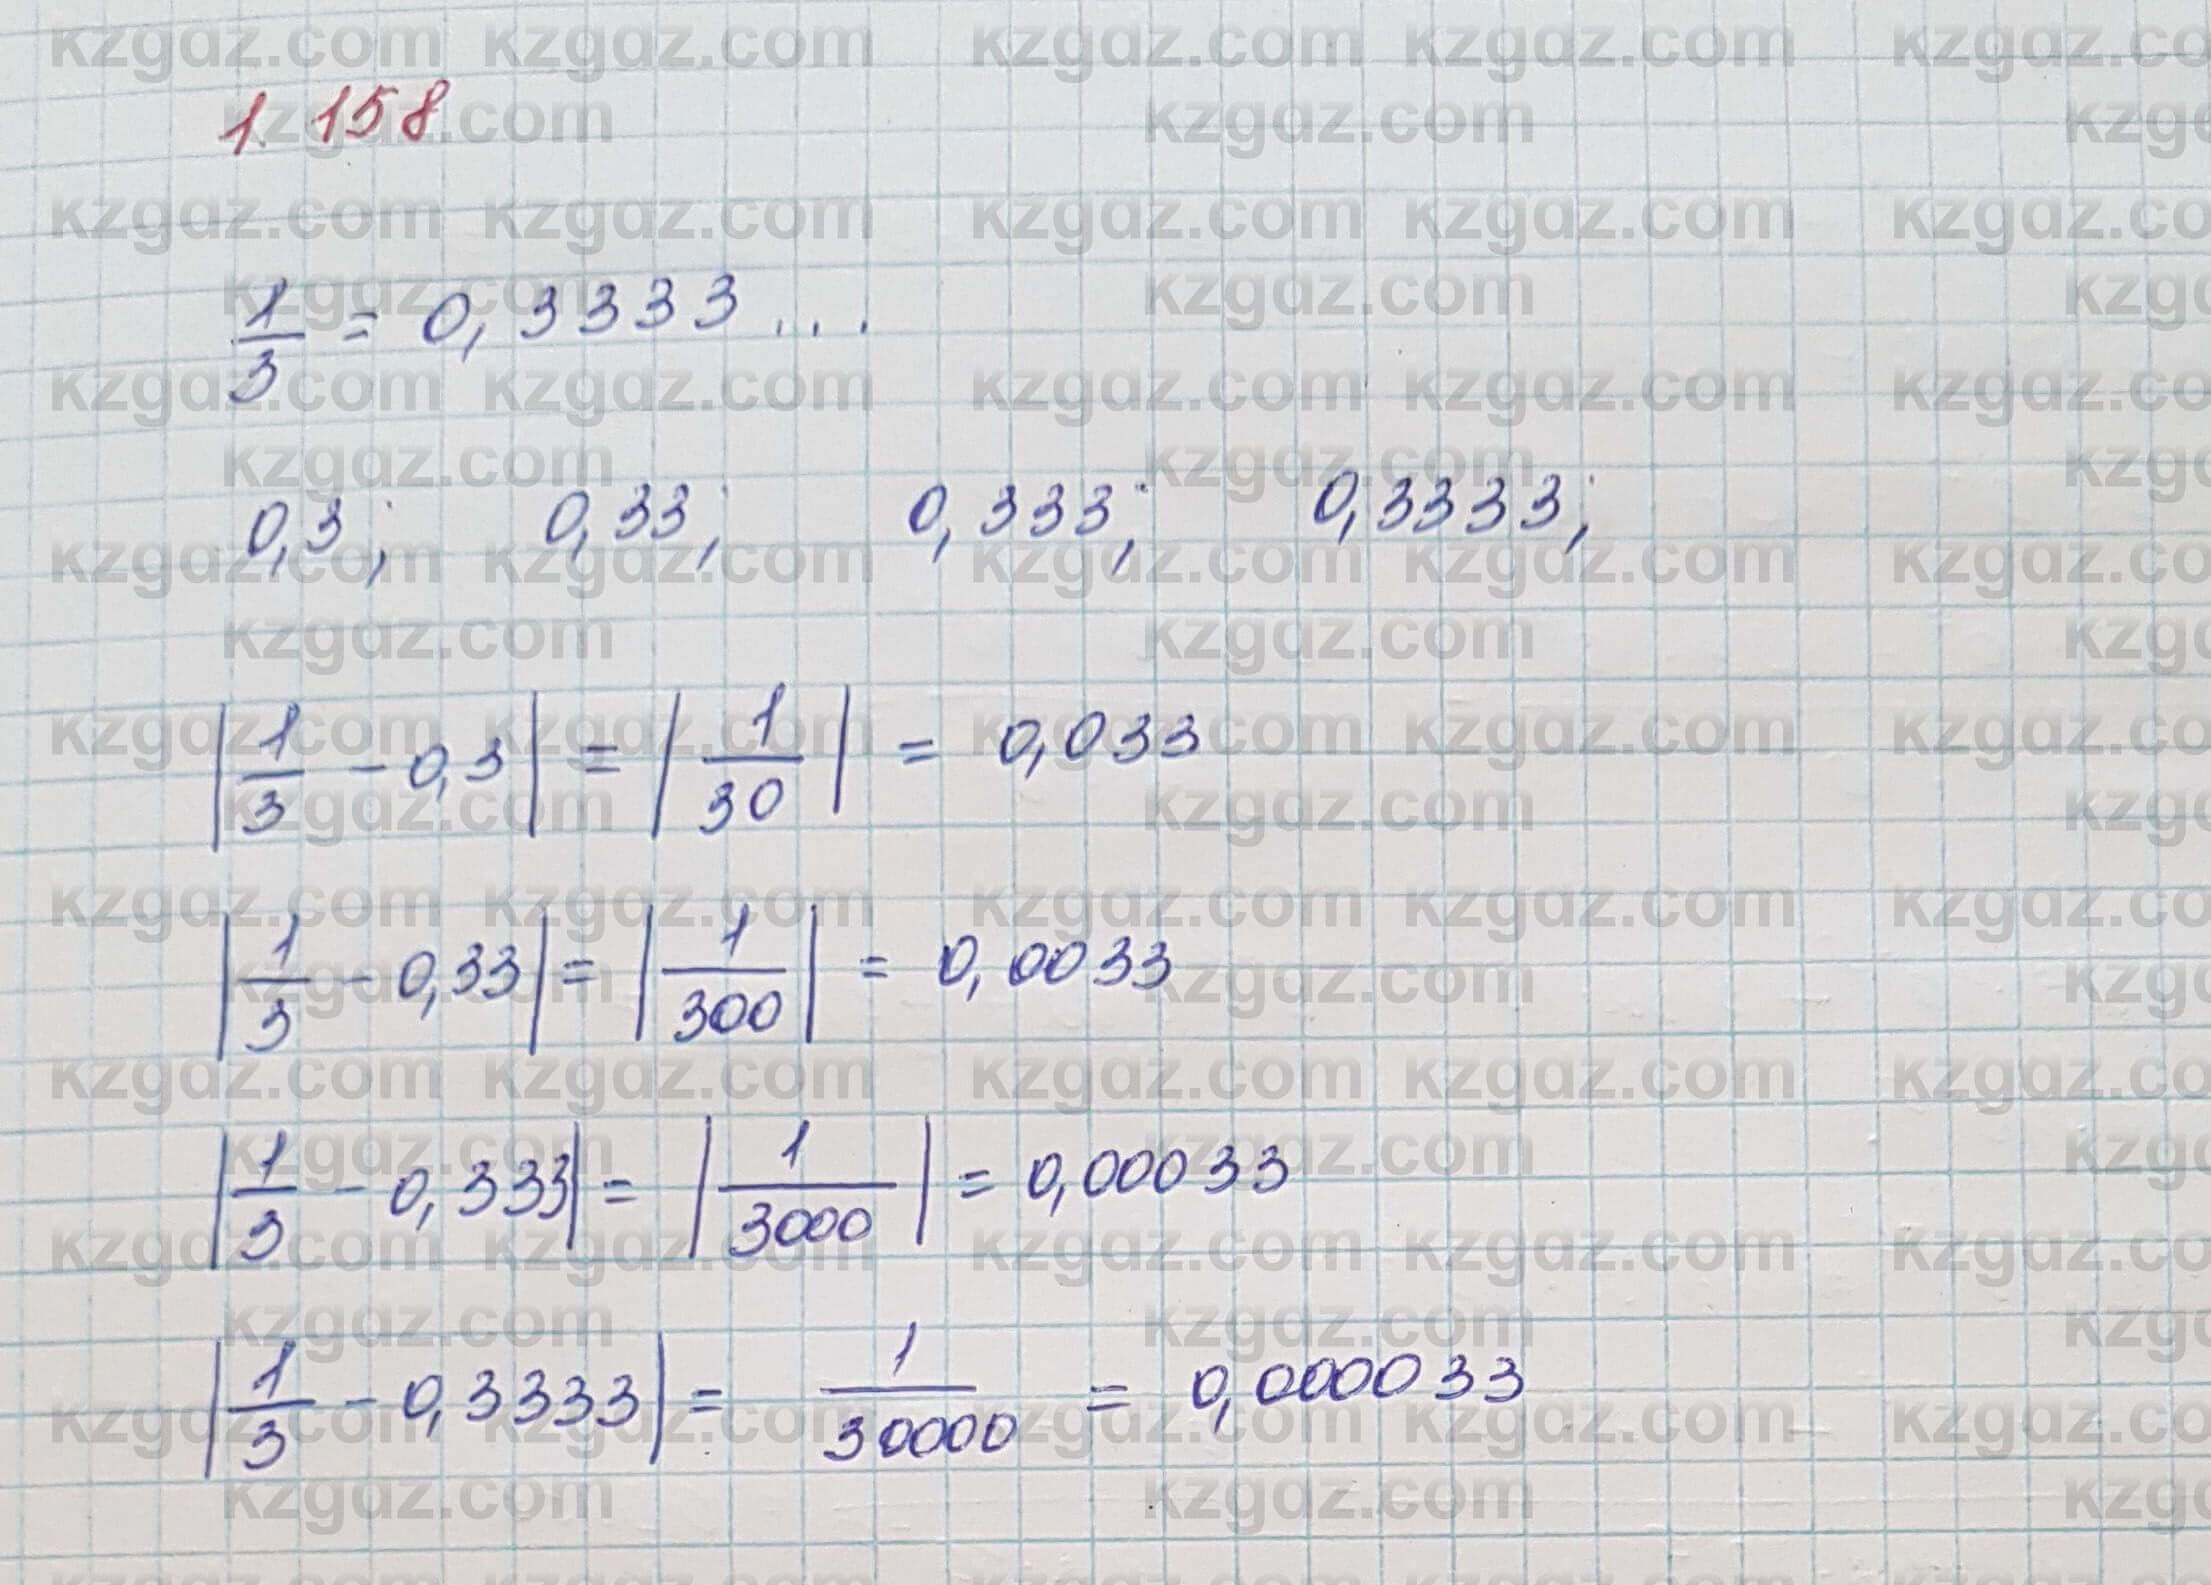 1.158
1/3 = 0,3333...
0,3; 0,33; 0,333; 0,3333;
|1/3 - 0,3| = |1/30| = 0,033
|1/3 - 0,33| = |1/300| = 0,0033
|1/3 - 0,333| = |1/3000| = 0,00033
|1/3 - 0,3333| = 1/30000 = 0,000033
kzgdz.com